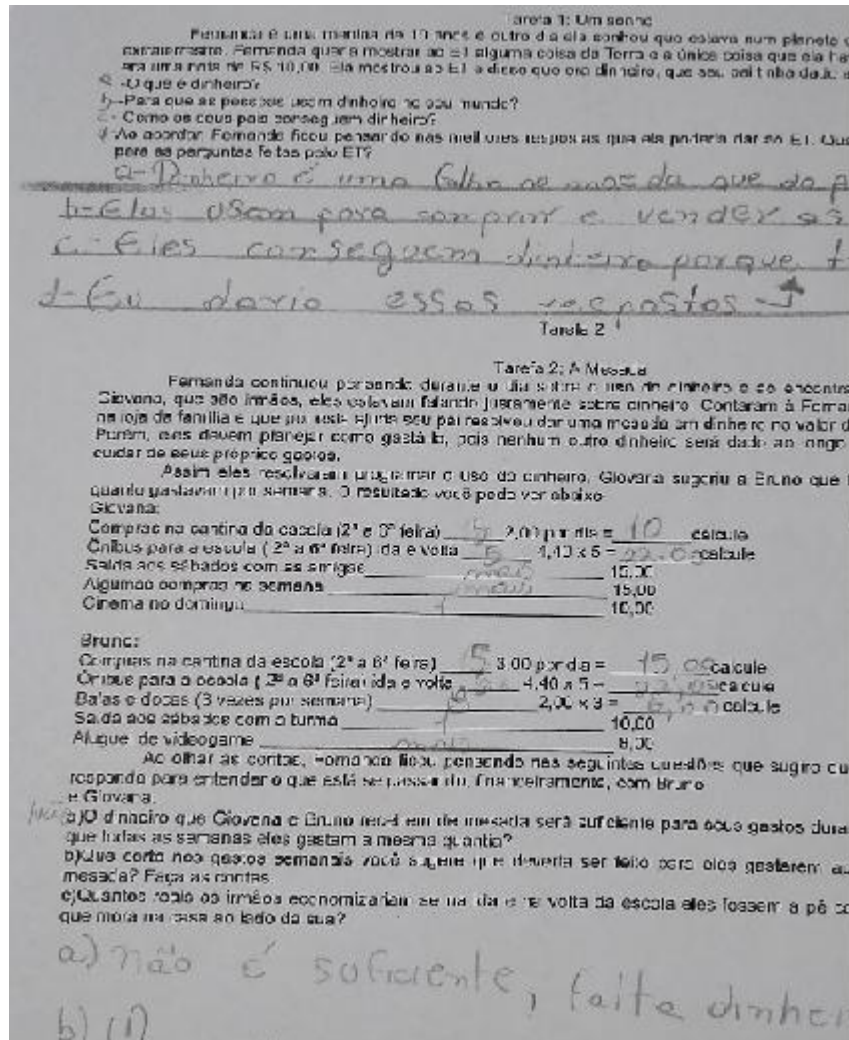 Tarefa 1: Um sonho
Fernanda é uma menina de 10 anos e outro dia ela sonhou que estava num planeta
extraterrestre. Fernanda queria mostrar ao ET alguma coisa da Terra e a única coisa que ela
era uma nota de R$ 10,00. Ela mostrou ao ET e disse que era dinheiro, que seu pai tinha dado
a -O que é dinheiro?
b -Para que as pessoas usam dinheiro no seu mundo?
c - Como os seus pais conseguem dinheiro?
d Ao acordar, Fernanda ficou pensando nas melhores respostas que ela poderia dar ao ET.
para as perguntas feitas pelo ET?
a- Dinheiro é uma da que
b- Elas usam para comprar e vender as
c- Eles conseguem dinheiro porque
d- Eu daria essas
Tarefa 2
Tarefa 2: A Mesada
Fernanda continuou pensando durante o dia sobre o uso do dinheiro e ao
Giovana, que são irmãos, eles estavam falando justamente sobre dinheiro. Contaram à
na loja da família e que por esta ajuda seu pai resolveu dar uma mesada em dinheiro no valor
Porém, eles devem planejar como gastá-lo, pois nenhum outro dinheiro será dado ao longo
cuidar de seus próprios gastos.
Assim eles resolveram programar o uso do dinheiro. Giovana sugeriu a Bruno que
quanto gastavam por semana. O resultado você pode ver abaixo
Giovana:
Compras na cantina da escola (2ª a 6ª feira) 5 2,00 por dia = 10 calcule
Ônibus para a escola ( 2ª a 6ª feira) ida e volta 5 4,40 x 5 = 22,0 calcule
Saída aos sábados com as amigas mais 15,00
Algumas compras na semana mais 15,00
Cinema no domingo + 10,00
Bruno:
Compras na cantina da escola (2ª a 6ª feira) 5 3,00 por dia = 15,00 calcule
Ônibus para a escola ( 2ª a 6ª feira) ida e volta 4,40 x 5 = 22,00 calcule
Balas e doces (3 vezes por semana) 2,00 x 3 = 6,00 calcule
Saída aos sábados com a turma + 10,00
Aluguel de videogame mais 8,00
Ao olhar as contas, Fernanda ficou pensando nas seguintes questões que sugiro
responda para entender o que está se passando, financeiramente, com Bruno
e Giovana.
a)O dinheiro que Giovana e Bruno recebem de mesada será suficiente para seus gastos
que todas as semanas eles gastam a mesma quantia?
b)Que corte nos gastos semanais você sugere que deveria ser feito para eles gastarem
mesada? Faça as contas.
c)Quantos reais os irmãos economizariam se na ida e na volta da escola eles fossem a pé
que mora na casa ao lado da sua?
a) não é suficiente, falta
b) (1)